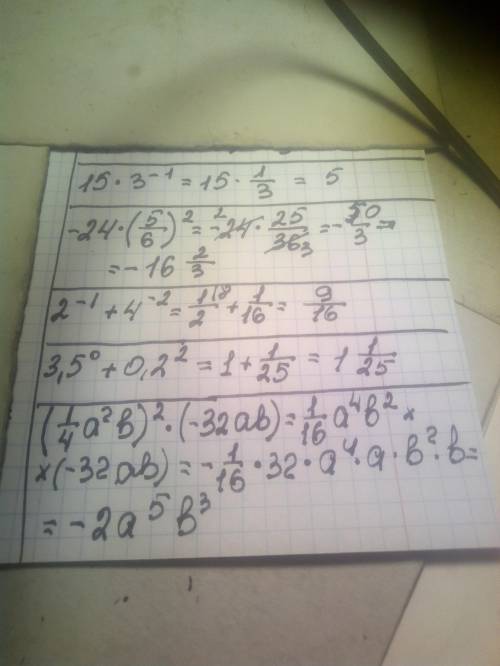 15 · 3⁻¹ = 15 · 1/3 = 5
-24 · (5/6)² = -24 · 25/36 = -50/3 =
= -16 2/3
2⁻¹ + 4⁻² = 1/2 + 1/16 = 9/16
3,5⁰ + 0,2² = 1 + 1/25 = 1 1/25
(1/4 a²b)² · (-32ab) = 1/16 a⁴b² ×
× (-32ab) = -1/16 · 32 · a⁴ · a · b² · b =
= -2a⁵b³